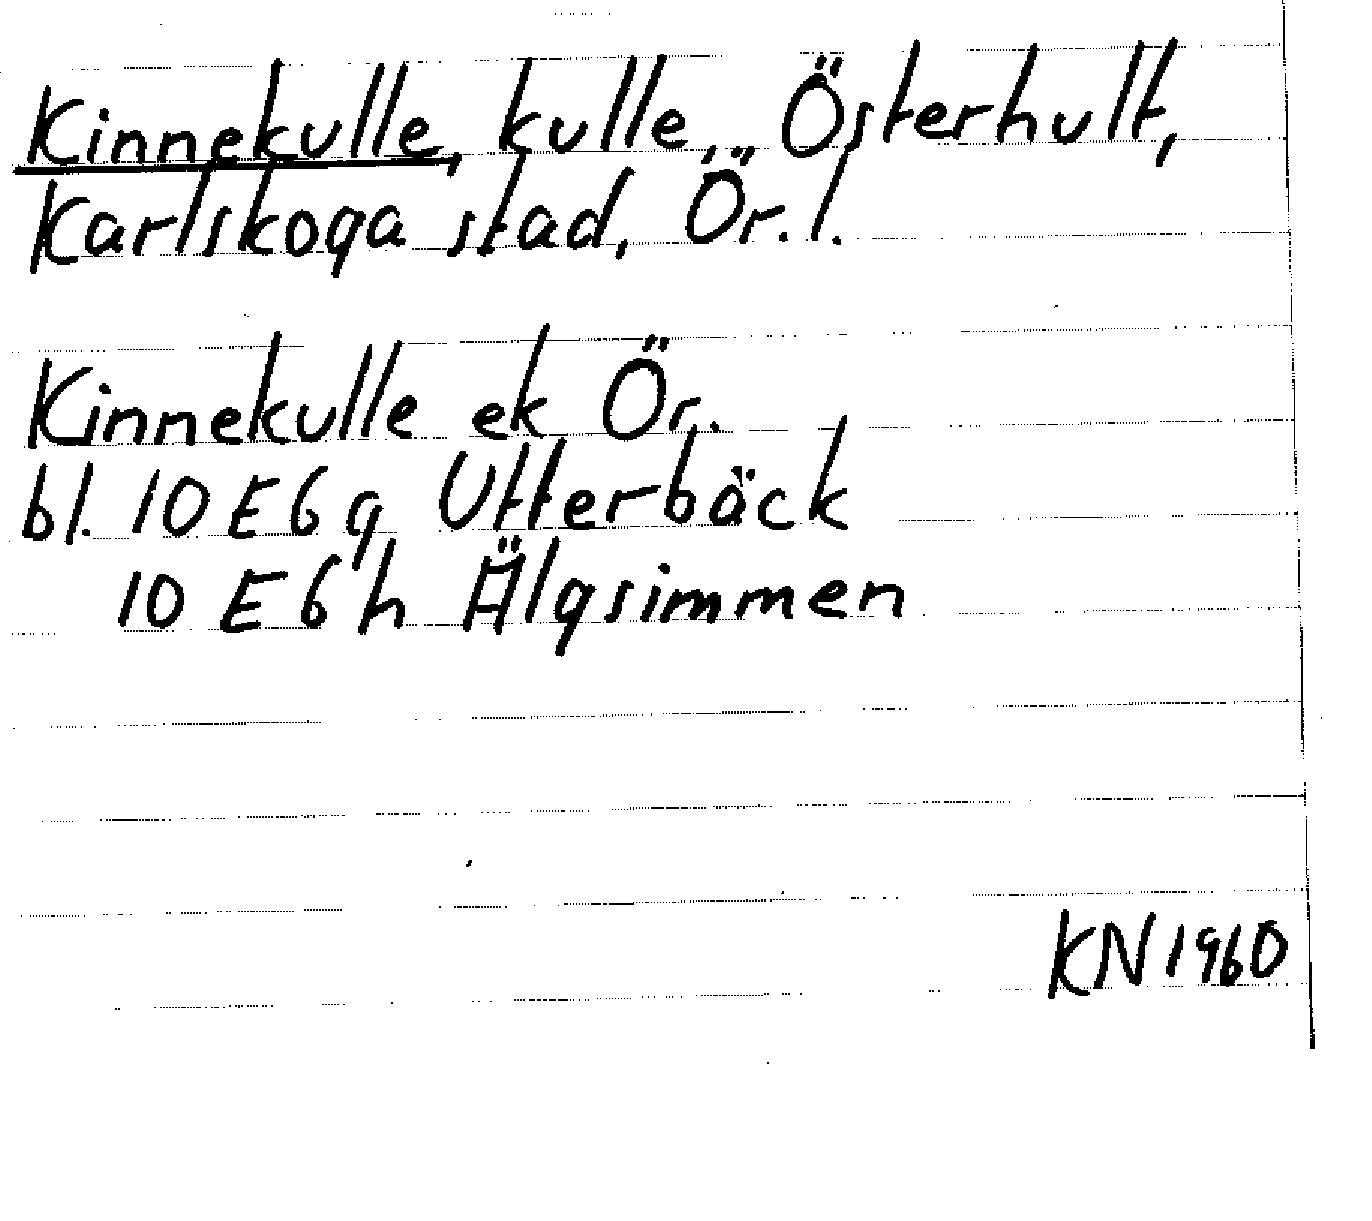 Kinnekulle, kulle, Österhult,
Karlskoga stad, Ör. l.
Kinnekulle ek Ör.
bl. 10 E 6 g Utterbäck
10 E 6 h Älgsimmen
KN 1960